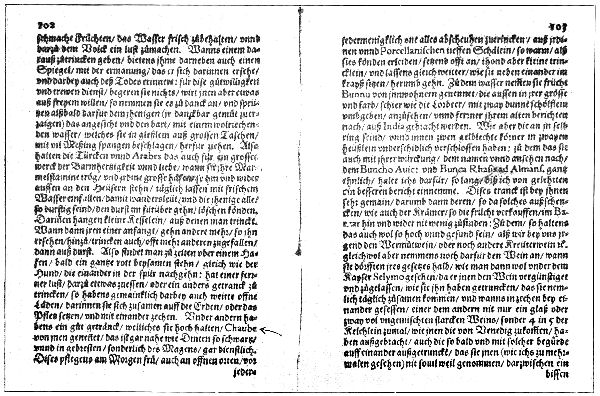 102
schmache Früchten / das Wasser frisch zübehalten / vnnd
darzů dem Volck ein lust zůmachen. Wanns einem dar-
rauß zůtrincken geben / bietens ihme darneben auch einen
Spiegel / mit der ermanung / das er sich darinnen ersehe /
vnd darbey auch deß Todes erinnere: für die gůtwilligkeit
vnd trewen dienst / begeren sie nichts / wirt jnen aber etwas
auß freyem willen / so nemmen sie es zů danck an / vnd sprü-
tzen alßbald darfür dem jhenigen (ir danckbar gemüt zuer-
zaigen) das angesicht vnd den bart / mit einem wolriechen-
den wasser / welches sie in gleßlein auß grossen Taschen /
mit vil Messing spangen beschlagen / herfür ziehen. Also
halten die Türcken vnnd Arabes das auch für ein grosses
werck der Barmhertzigkeit vnnd liebe / wann sie ihre Mar-
melsteinine trög / vnd zedens grosse häfen / so hin vnd wider
aussen an den Heüsern stehn / täglich lassen mit frischem
Wasser anfüllen / damit wandersleüt / vnd die jhenige alle /
so durstig seind / den durst im fürüber gehn / löschen könden.
Darinnen hangen kleine Kesselein / auß denen man trinckt.
Wann dann jren einer anfangt / gehn andere mehr / so ihn
ersehen / hinzů / trincken auch / offt mehr anderen zugefallen /
dann auß durst. Also findet man zu zeiten vber einem Ha-
fen / bald ein gantze rott beysamen stehn / gleich wie der
Hund / die einander in der spůr nachgehn: hat einer fer-
ner lust / darzů etwas zuessen / oder ein anders getranck zů
trincken / so habens gemainklich darbey auch weitte offne
Läden / darinnen sie sich zusamen auff der Erden / oder das
Pflez setzen / vnd mit einander zechen. Vnder andern ha-
bens ein gůt getränck / welliches sie hoch halten / Chaube
von jnen genennet / das ist gar nahe wie Dinten so schwartz /
vnnd in gebresten / sonderlich des Magens / gar dienstlich.
Dises pflegens am Morgen frü / auch an offnen orten / vor
jeder-
103
jedermenigklich one alles abscheuhen zutrincken / auß jrdi-
nen vnnd Porcellanischen tieffen Schälein / so warm / alß
sies könden erleiden / setzend offt an / thond aber kleine trinck-
lein / vnd lassens gleich weitter / wie sie neben einander im
krayß sitzen / herumb gehn. Zů dem wasser nemmen sie frücht
Bunnu von jnwohnern genennet / die aussen in jrer grösse
vnd farb / schier wie die Lorbeer / mit zway dünnen schölflein
vmbgeben / anzusehen / vnnd ferner jhrem alten berichten
nach / auß India gebracht werden. Wie aber die an jn selb
ring seind / vnnd innen zwen gelblechte körner in zwayen
heüßlein vnderschidlich verschlossen haben: zů dem das sie
auch mit jhrer wirckung / dem namen vnnd ansehen nach /
dem Buncho Auic: vnd Bunca Rhasis ad Almans. gantz
ehnlich / halte ichs darfür / so lang / biß ich von gelehrten
ein besseren bericht einnemme. Dises tranck ist bey ihnen
sehr gemain / darumb dann deren / so da solches außschen-
cken / wie auch der Krämer / so die frücht verkauffen / im Ba-
tzar hin vnd wider nit wenig zůfinden: Zů dem / so haltens
das auch wol so hoch vnnd gesund sein / alß wir bey vns jr-
gend den Wermůtwein / oder noch andere Kreüterwein ꝛc.
gleichwol aber nemmens noch darfür den Wein an / wann
sie dörfften jres gesetzes halb / wie man dann wol vnder dem
Kayser Selymo gesehen / da er jnen den Wein vergünstiget
vnd zůgelassen / wie sie jhn haben getruncken / das sie nem-
lich täglich zůsamen kommen / vnd wanns im zechen bey ei-
nander gesessen / einer dem andern nit nur ein glaß oder
zway vol vngemischten starcken Weins / sonder 4 in 5 der
Kelchlein zumal / wie jnen die von Venedig zůkommen / ha-
ben außgebracht / auch die so bald vnd mit solcher begürde
auff einander außgetruncken / das sie jnen (wie ichs zů mehr-
malen gesehen) nit souil weil genommen / darzwischen ein
bissen